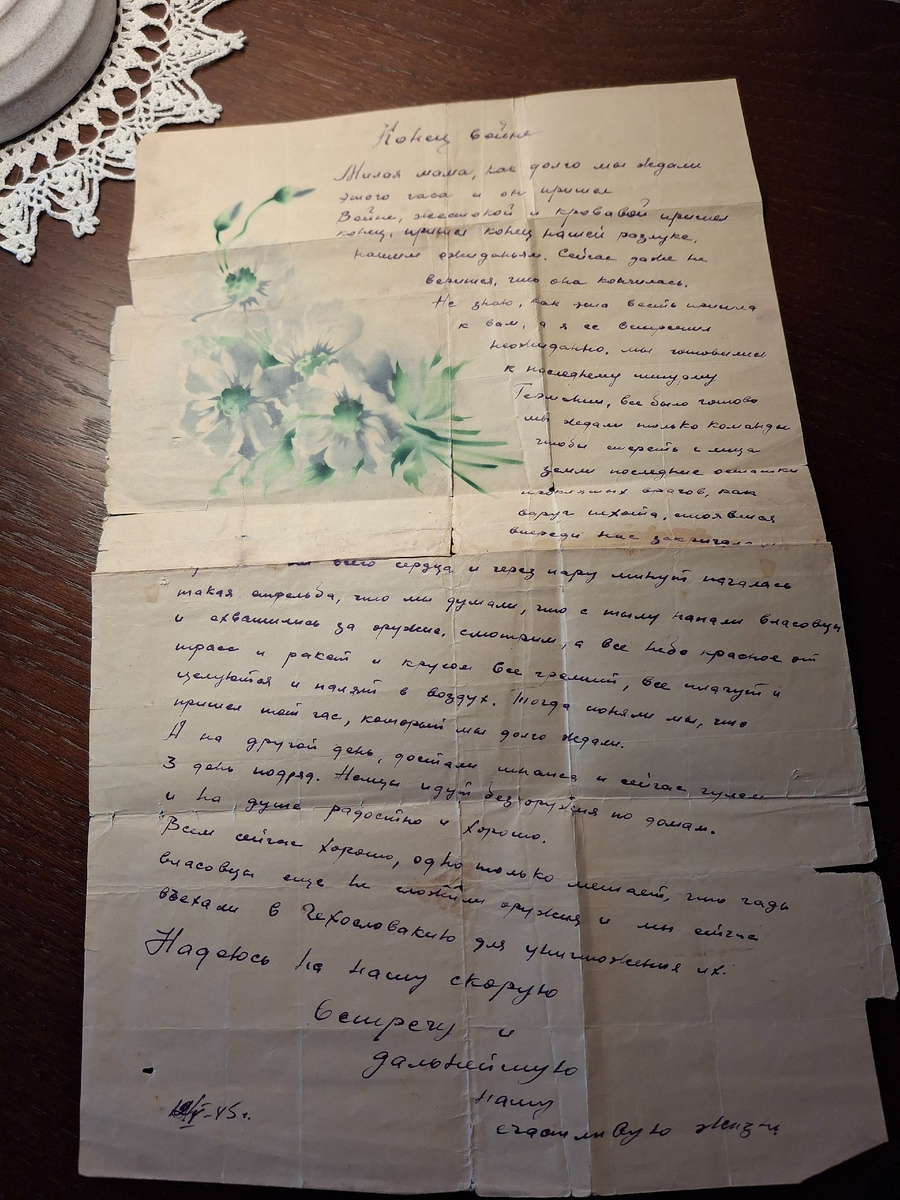 Конец войне
Милая мама, как долго мы ждали
этого часа и он пришел
Войне, жестокой и кровавой пришел
конец, пришел конец нашей разлуке,
нашим ожиданьям. Сейчас даже не
верится, что она кончилась.
Не знаю, как эта весть пришла
к вам, а я ее встретил
неожиданно, мы готовились
к последнему штурму
Германии, все было готово
мы ждали только команды
чтобы стереть с лица
земли последние остатки
проклятых врагов, как
вдруг пехота, стоявшая
впереди нас закричала
всего сердца и через пару минут началась
такая стрельба, что мы думали, что с тылу напали власовцы
и схватились за оружие, смотрим, а все небо красное от
трасс и ракет и кругом все гремит, все плачут и
целуются и палят в воздух. Тогда поняли мы, что
пришел тот час, который мы долго ждали.
А на другой день, достали шнапса и сейчас гуляем
3 день подряд. Немцы идут без оружия по домам.
и на душе радостно и хорошо.
Всем сейчас хорошо, одно только мешает, что гады
власовцы еще не сложили оружия и мы сейчас
въехали в Чехословакию для уничтожения их.
Надеюсь на нашу скорую
встречу и
дальнейшую
нашу
счастливую жизнь
V-45г.